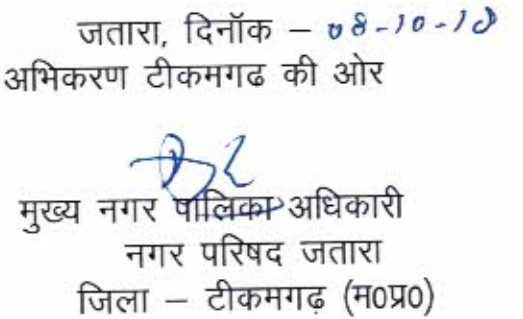 जतारा, दिनॉक – 08-10-18
अभिकरण टीकमगढ की ओर
मुख्य नगर पालिका अधिकारी
नगर परिषद जतारा
जिला – टीकमगढ़ (म0प्र0)